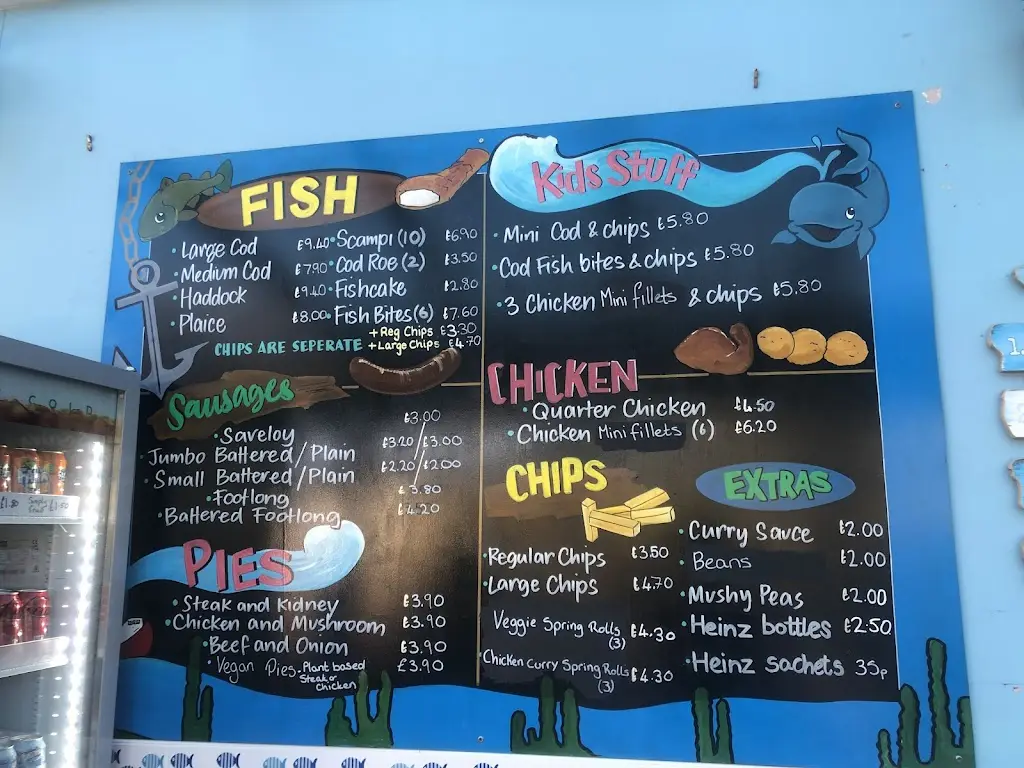 FISH
· Large Cod £9.40
· Medium Cod £7.90
· Haddock £9.40
· Plaice £8.00
· Scampi (10) £6.90
· Cod Roe (2) £3.50
· Fishcake £2.80
· Fish Bites (6) £7.60
+ Reg Chips £3.30
CHIPS ARE SEPERATE + Large Chips £4.70
Sausages
· Saveloy £3.00
· Jumbo Battered/Plain £3.20/£3.00
· Small Battered/Plain £2.20/£2.00
· Footlong £3.80
· Battered Footlong £4.20
PIES
· Steak and Kidney £3.90
· Chicken and Mushroom £3.90
· Beef and Onion £3.90
· Vegan Pies · Plant based £3.90
Steak or
Chicken
Kids Stuff
· Mini Cod & chips £5.80
· Cod Fish bites & chips £5.80
· 3 Chicken Mini fillets & chips £5.80
CHICKEN
· Quarter Chicken £4.50
· Chicken Mini fillets (6) £6.20
CHIPS
· Regular Chips £3.50
· Large Chips £4.70
Veggie Spring Rolls £4.30
(3)
· Chicken Curry Spring Rolls £4.30
(3)
EXTRAS
· Curry Sauce £2.00
· Beans £2.00
· Mushy Peas £2.00
· Heinz bottles £2.50
· Heinz sachets 35p
COLD